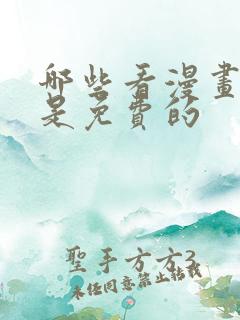 哪些看漫畫
是免費的
聖手方方3
未经同意禁止转载